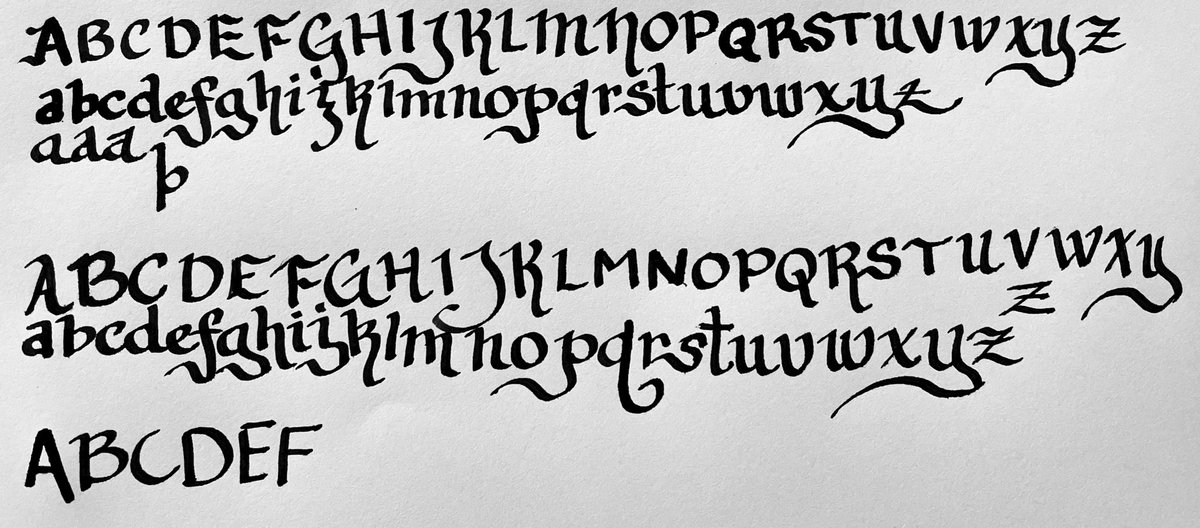 ABCDEFGHIJKLMNOPQRSTUVWXYZ
abcdefghijklmnopqrstuvwxyz
aaa
þ
ABCDEFGHIJKLMNOPQRSTUVWXY
Z
abcdefghijklmnopqrstuvwxyz
ABCDEF